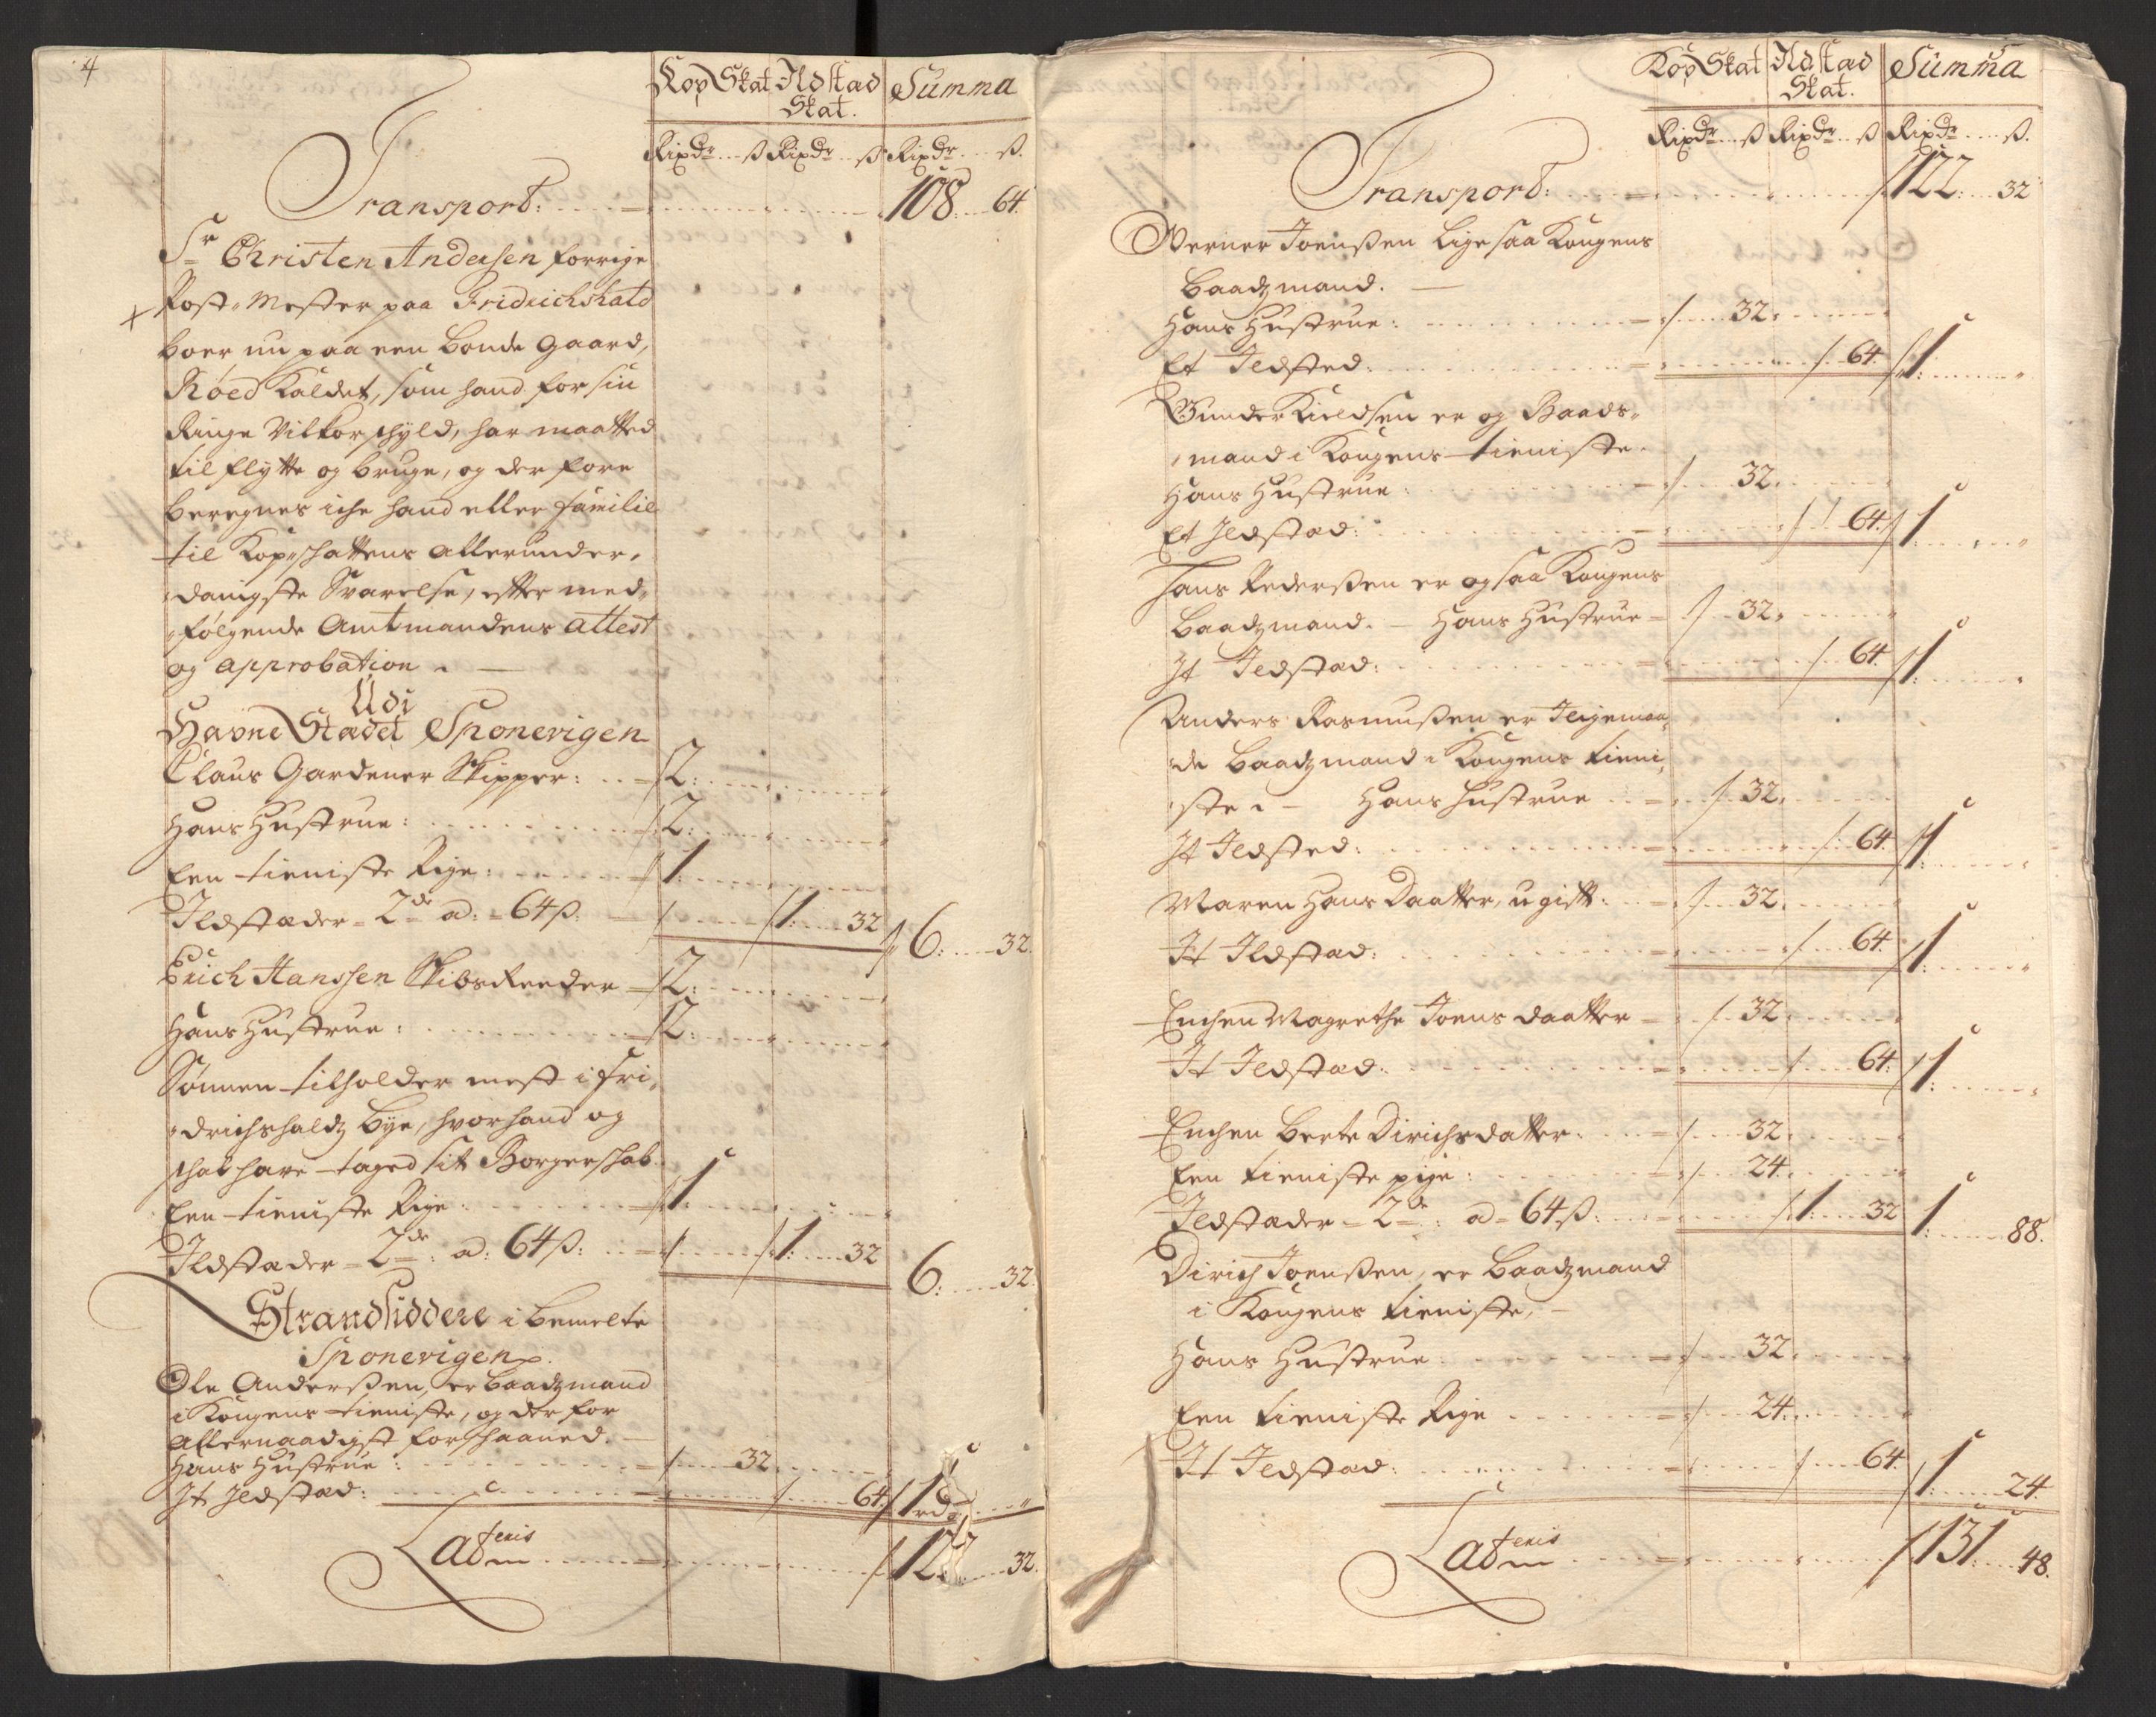 4
Kop Skat Ildstad Skat. Summa
Rixdr ß Rixdr ß Rixdr ß.
Transport: 108 64.
Sr Christen Andersen forrige
+ Post-Mester paa Fridrichshald
boer nu paa een bonde gaard,
Röed Kaldet, som hand for sin
Ringe Vilkor skyld, har maatted
til flytte og bruge, og der fore
beregnes iche hand eller familie
til Kop-schattens allerunder-
danigste Svarelse, efter med-
følgende Amtmandens attest
og approbation.
Udi
Havne Stædet Sponevigen
Claus Gardener Skipper: 2:
Hans Hustrue: 2:
Een tieniste Pige: 1:
Ildstæder - 2de a: 64 ß: 1: 32 6: 32.
Erich Hanssen SkibsReeder 2:
Hans Hustrue: 2:
Sönnen tilholder mest i Fri-
drichshaldz bye, hvor hand og
skal have taged sit Borgerskab
Een tieniste Pige: 1:
Ildstæder - 2de: a: 64 ß: 1: 32 6: 32.
Strandsiddere i bemelte
Sponevigen.
Ole Anderßen, er baadzmand
i Kongens tieniste, og der for
allernaadigst forskaaned.
Hans Hustrue: 32.
It Ildstæd: 64. 1rd
Lateris 122: 32.
5
Kop Skat Ildstad Skat. Summa
Rixdr ß Rixdr ß Rixdr ß.
Transport: 122: 32
Verner Joenßen ligesaa Kongens
baadzmand.
Hans Hustrue: 32.
Et Ildsted: 64. 1:
Gunder Kieldsen er og Baads-
mand i Kongens tieniste.
Hans Hustrue: 32.
Et Ildstæd: 64. 1:
Hans Pederßen er ogsaa Kongens
baadzmand. - Hans Hustrue 32.
It Ildstæd: 64. 1:
Anders Rasmußen er Ligemaa-
de baadzmand i Kongens tieni-
ste. - Hans Hustrue 32.
It Ildsted: 64. 1:
Maren Hans Daatter, ugift: 32.
It Ildstæd: 64. 1:
Enchen Magrethe Joens daatter 32.
It Ildstæd: 64. 1:
Enchen Berte Dirichsdatter: 32.
Een tieniste pige: 24.
Ildstæder - 2de: a 64 ß: 1: 32 1: 88.
Dirich Joenßen, er baadzmand
i Kongens tieniste,
Hans Hustrue: 32.
Een tieniste Pige 24.
It Ildstæd: 64. 1: 24.
Lateris 131: 48.